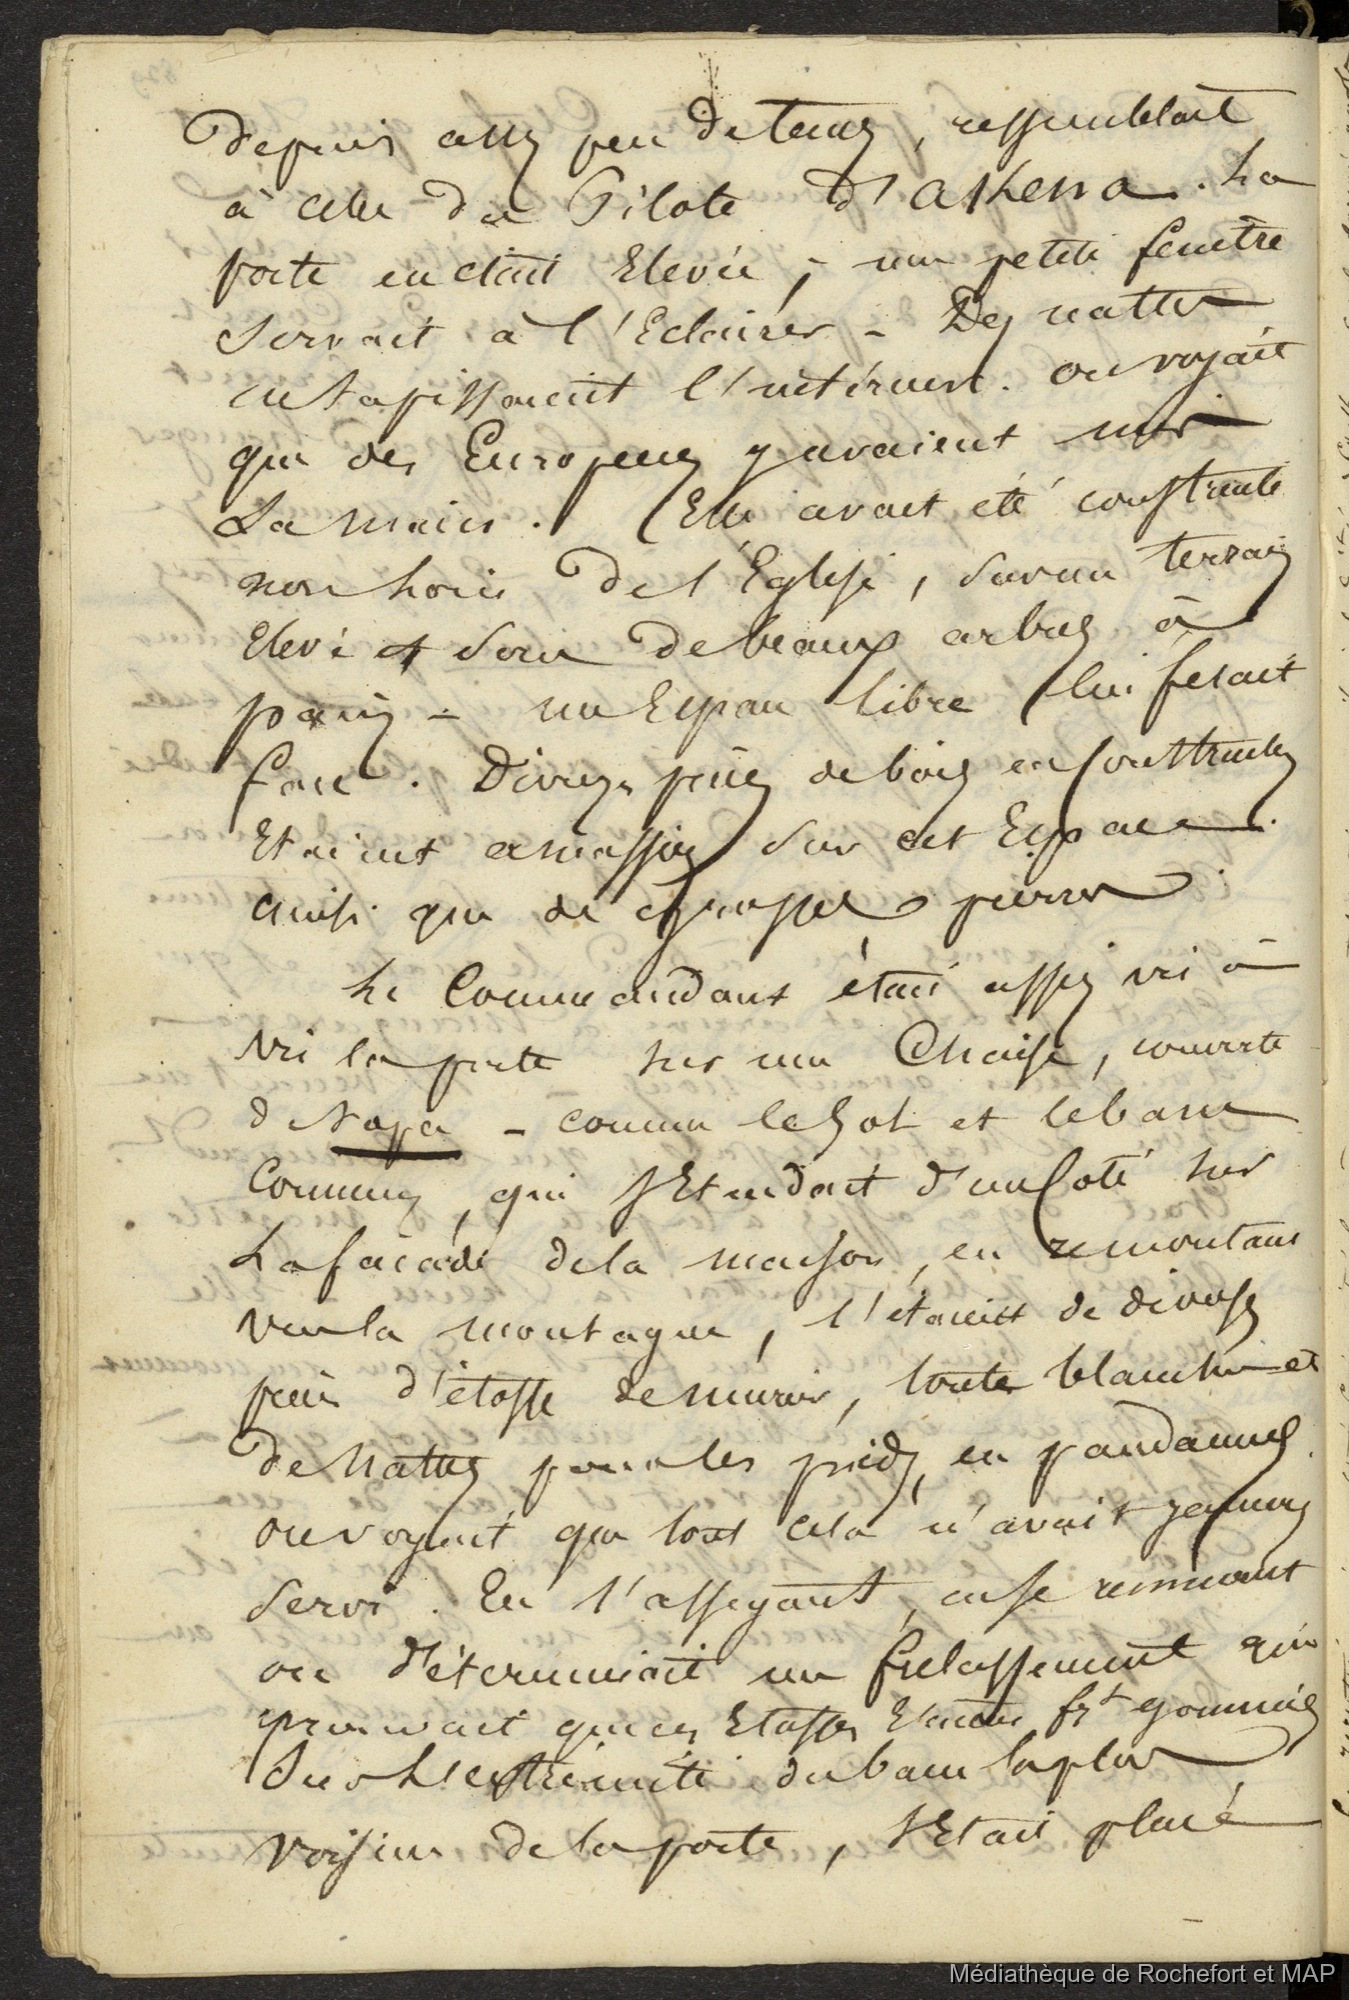 depuis assez peu de temps, ressemblait
à celle du Pilote d'akena. La
porte en était Elevée, une petite fenêtre
servait à l'Eclairer - Des nattes
en tapissaient l'intérieur. on voyait
que des Européens y avaient mis
La main. Elle avait été construite
non loin de l'Eglise, sur un terrain
Elevé et sous de beaux arbres à
pain - un Espace libre lui fesait
face. Diverses pièces de bois en construction
Etaient amassées sur cet Espace
ainsi que de grosses pierres.
Le Commandant était assis vis à
vis la porte sur une Chaise, couverte
de Napa - comme le sol et le banc
commun, qui s'Etendait d'un Coté sur
La façade de la maison, en remontant
vers la montagne, c'étaient de diverses
pièces d'étoffe de murier, toutes blanches et
de nattes pour les pieds, en pandanus
on voyait que tout cela n'avait jamais
servi. En s'asseyant, en se remuant
on déterminait un froissement qui
prouvait que ces Etoffes Etaient frt gommées
Sur L'extrémité du banc la plus
voisine de la porte, s'Etait placé
Médiathèque de Rochefort et MAP